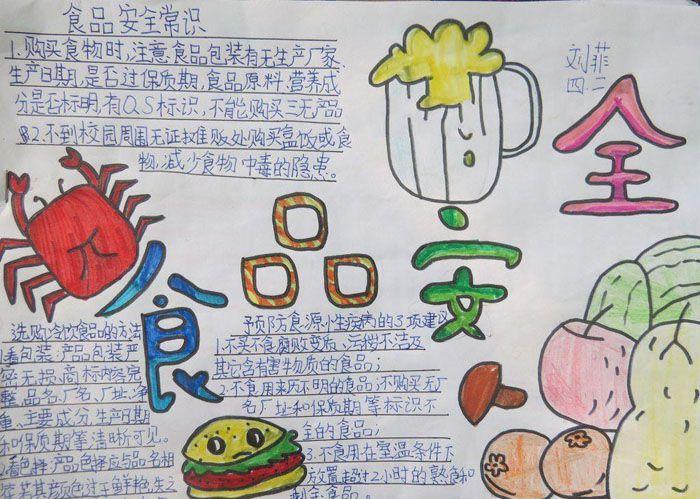 食品安全常识
1.购买食物时,注意食品包装有无生产厂家、
生产日期,是否过保质期,食品原料、营养成
分是否标明,有QS标识,不能购买三无产品
2.不到校园周围无证摊贩处购买盒饭或食
物,减少食物中毒的隐患。
刘菲
四.二
食品安全
选购冷饮食品的方法
看包装:产品包装严
密无损,商标内容完
整,品名、厂名、厂址、净
重、主要成分、生产日期
和保质期等清晰可见。
看色择:产品色择应与品名相
预防食源性疾病的3项建议
1.不买不食腐败变质、污秽不洁及
其它含有害物质的食品;
2.不食用来历不明的食品;不购买无厂
名厂址和保质期等标识不
全的食品;
3.不食用在室温条件下
放置超过2小时的熟食和
剩余食品。